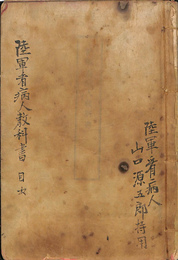 陸軍看病人
山口源五郎荷用
陸軍看病人教科書